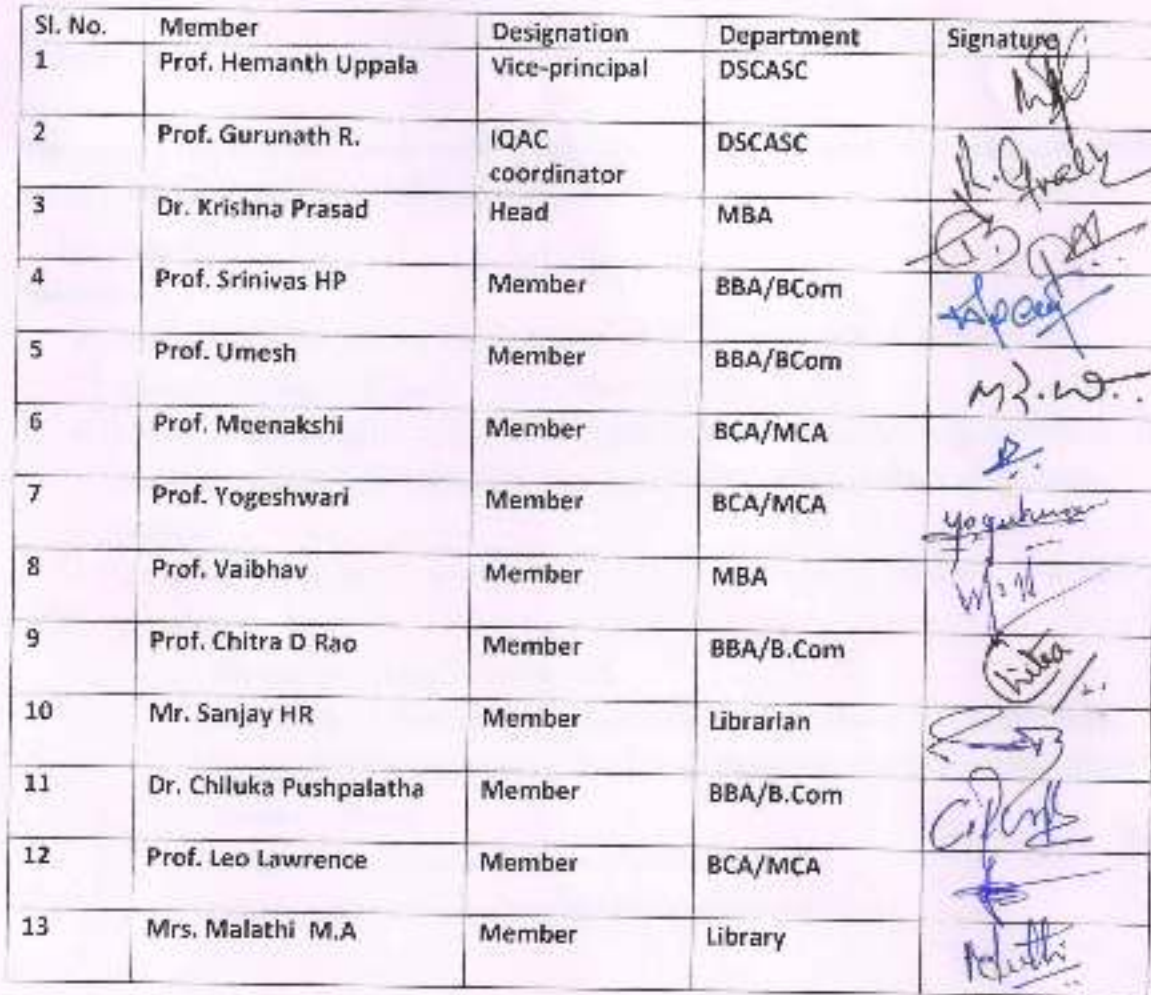 Sl. No. Member Designation Department Signature
1 Prof. Hemanth Uppala Vice-principal DSCASC
2 Prof. Gurunath R. IQAC DSCASC
coordinator
3 Dr. Krishna Prasad Head MBA
4 Prof. Srinivas HP Member BBA/BCom
5 Prof. Umesh Member BBA/BCom
6 Prof. Meenakshi Member BCA/MCA
7 Prof. Yogeshwari Member BCA/MCA
8 Prof. Vaibhav Member MBA
9 Prof. Chitra D Rao Member BBA/B.Com
10 Mr. Sanjay HR Member Librarian
11 Dr. Chiluka Pushpalatha Member BBA/B.Com
12 Prof. Leo Lawrence Member BCA/MCA
13 Mrs. Malathi M.A Member Library